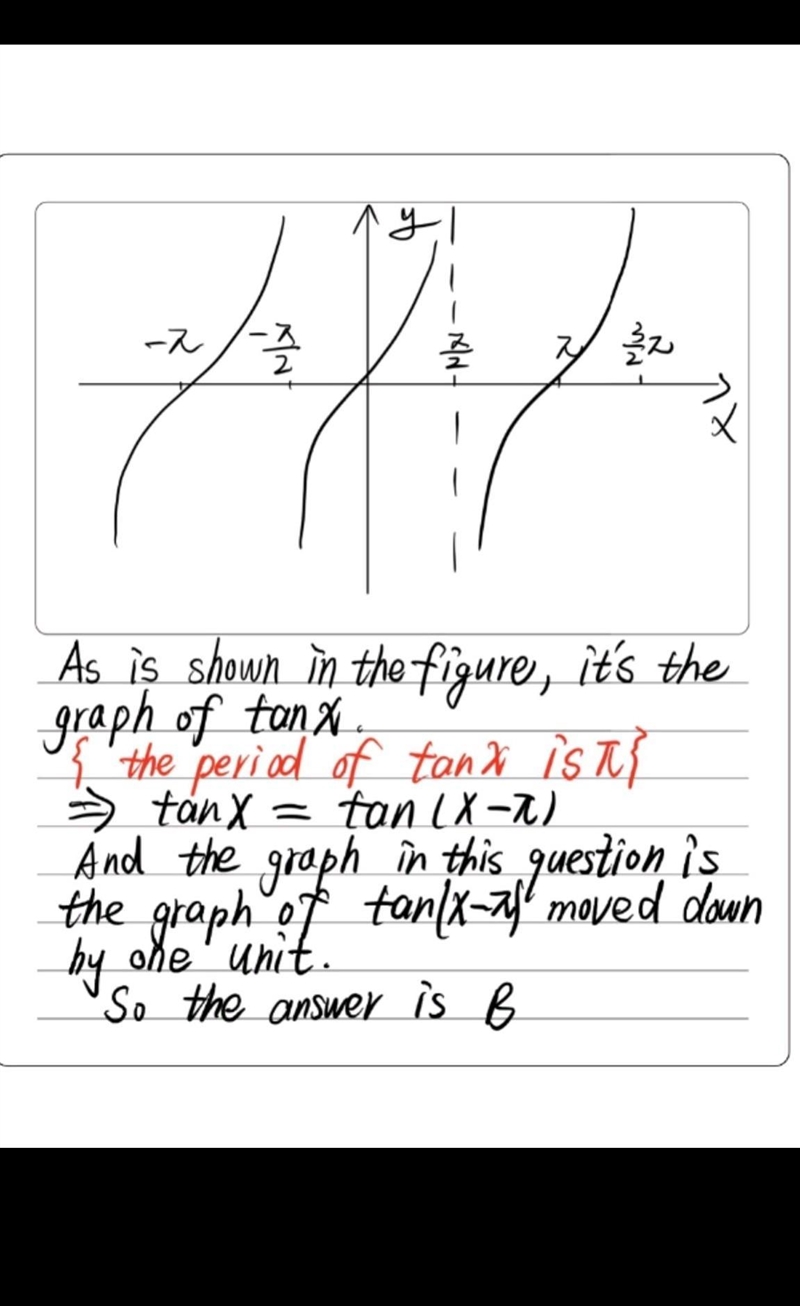 y
-π
-π/2
π/2
π
3/2 π
x
As is shown in the figure, it's the
graph of tanx.
{ the period of tanx is π}
⇒ tanx = tan(x-π)
And the graph in this question is
the graph of tan(x-π) moved down
by one unit.
So the answer is B